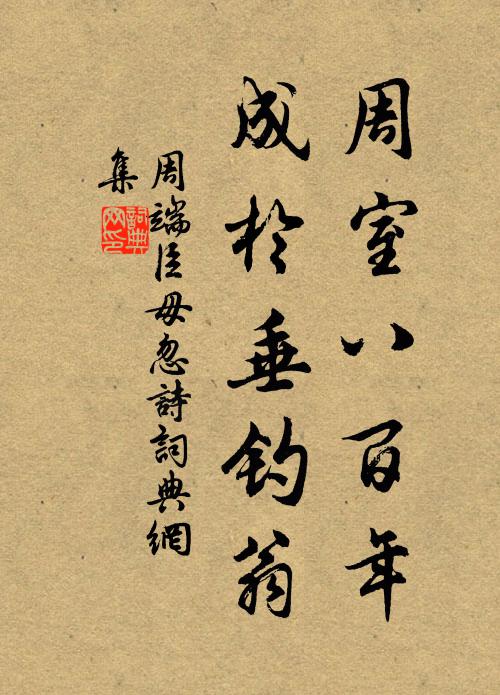 周室八百年
成於垂釣翁
周端臣毋忽詩詞典網
集
詞典网印